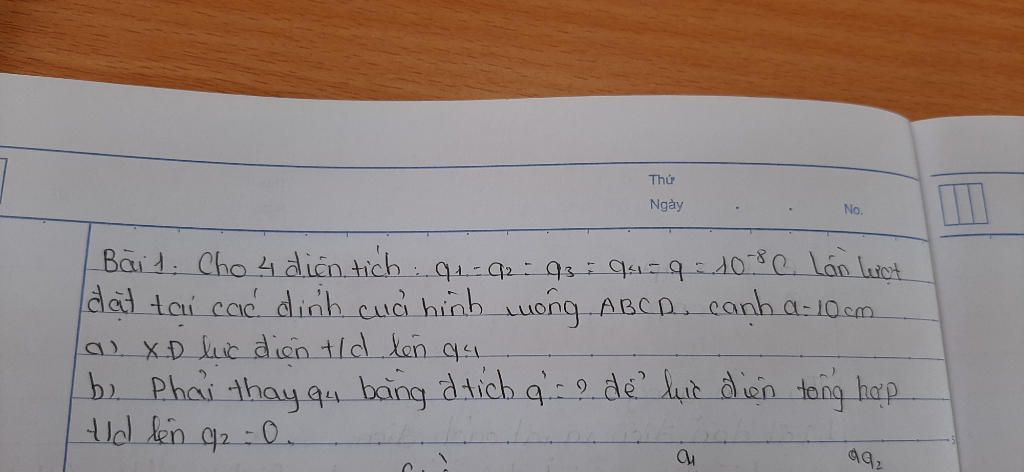 Thứ
Ngày . . No.
Bài 1: Cho 4 điện tích: q1 = q2 = q3 = q4 = q = 10⁻⁸C. Lần lượt
đặt tại các đỉnh cuả hình vuông ABCD, cạnh a = 10cm
a) XĐ lực điện t/d lên q4
b) Phải thay q4 bằng đtích q' = ? để lực điện tổng hợp
t/d lên q2 = 0.
q1 qq2